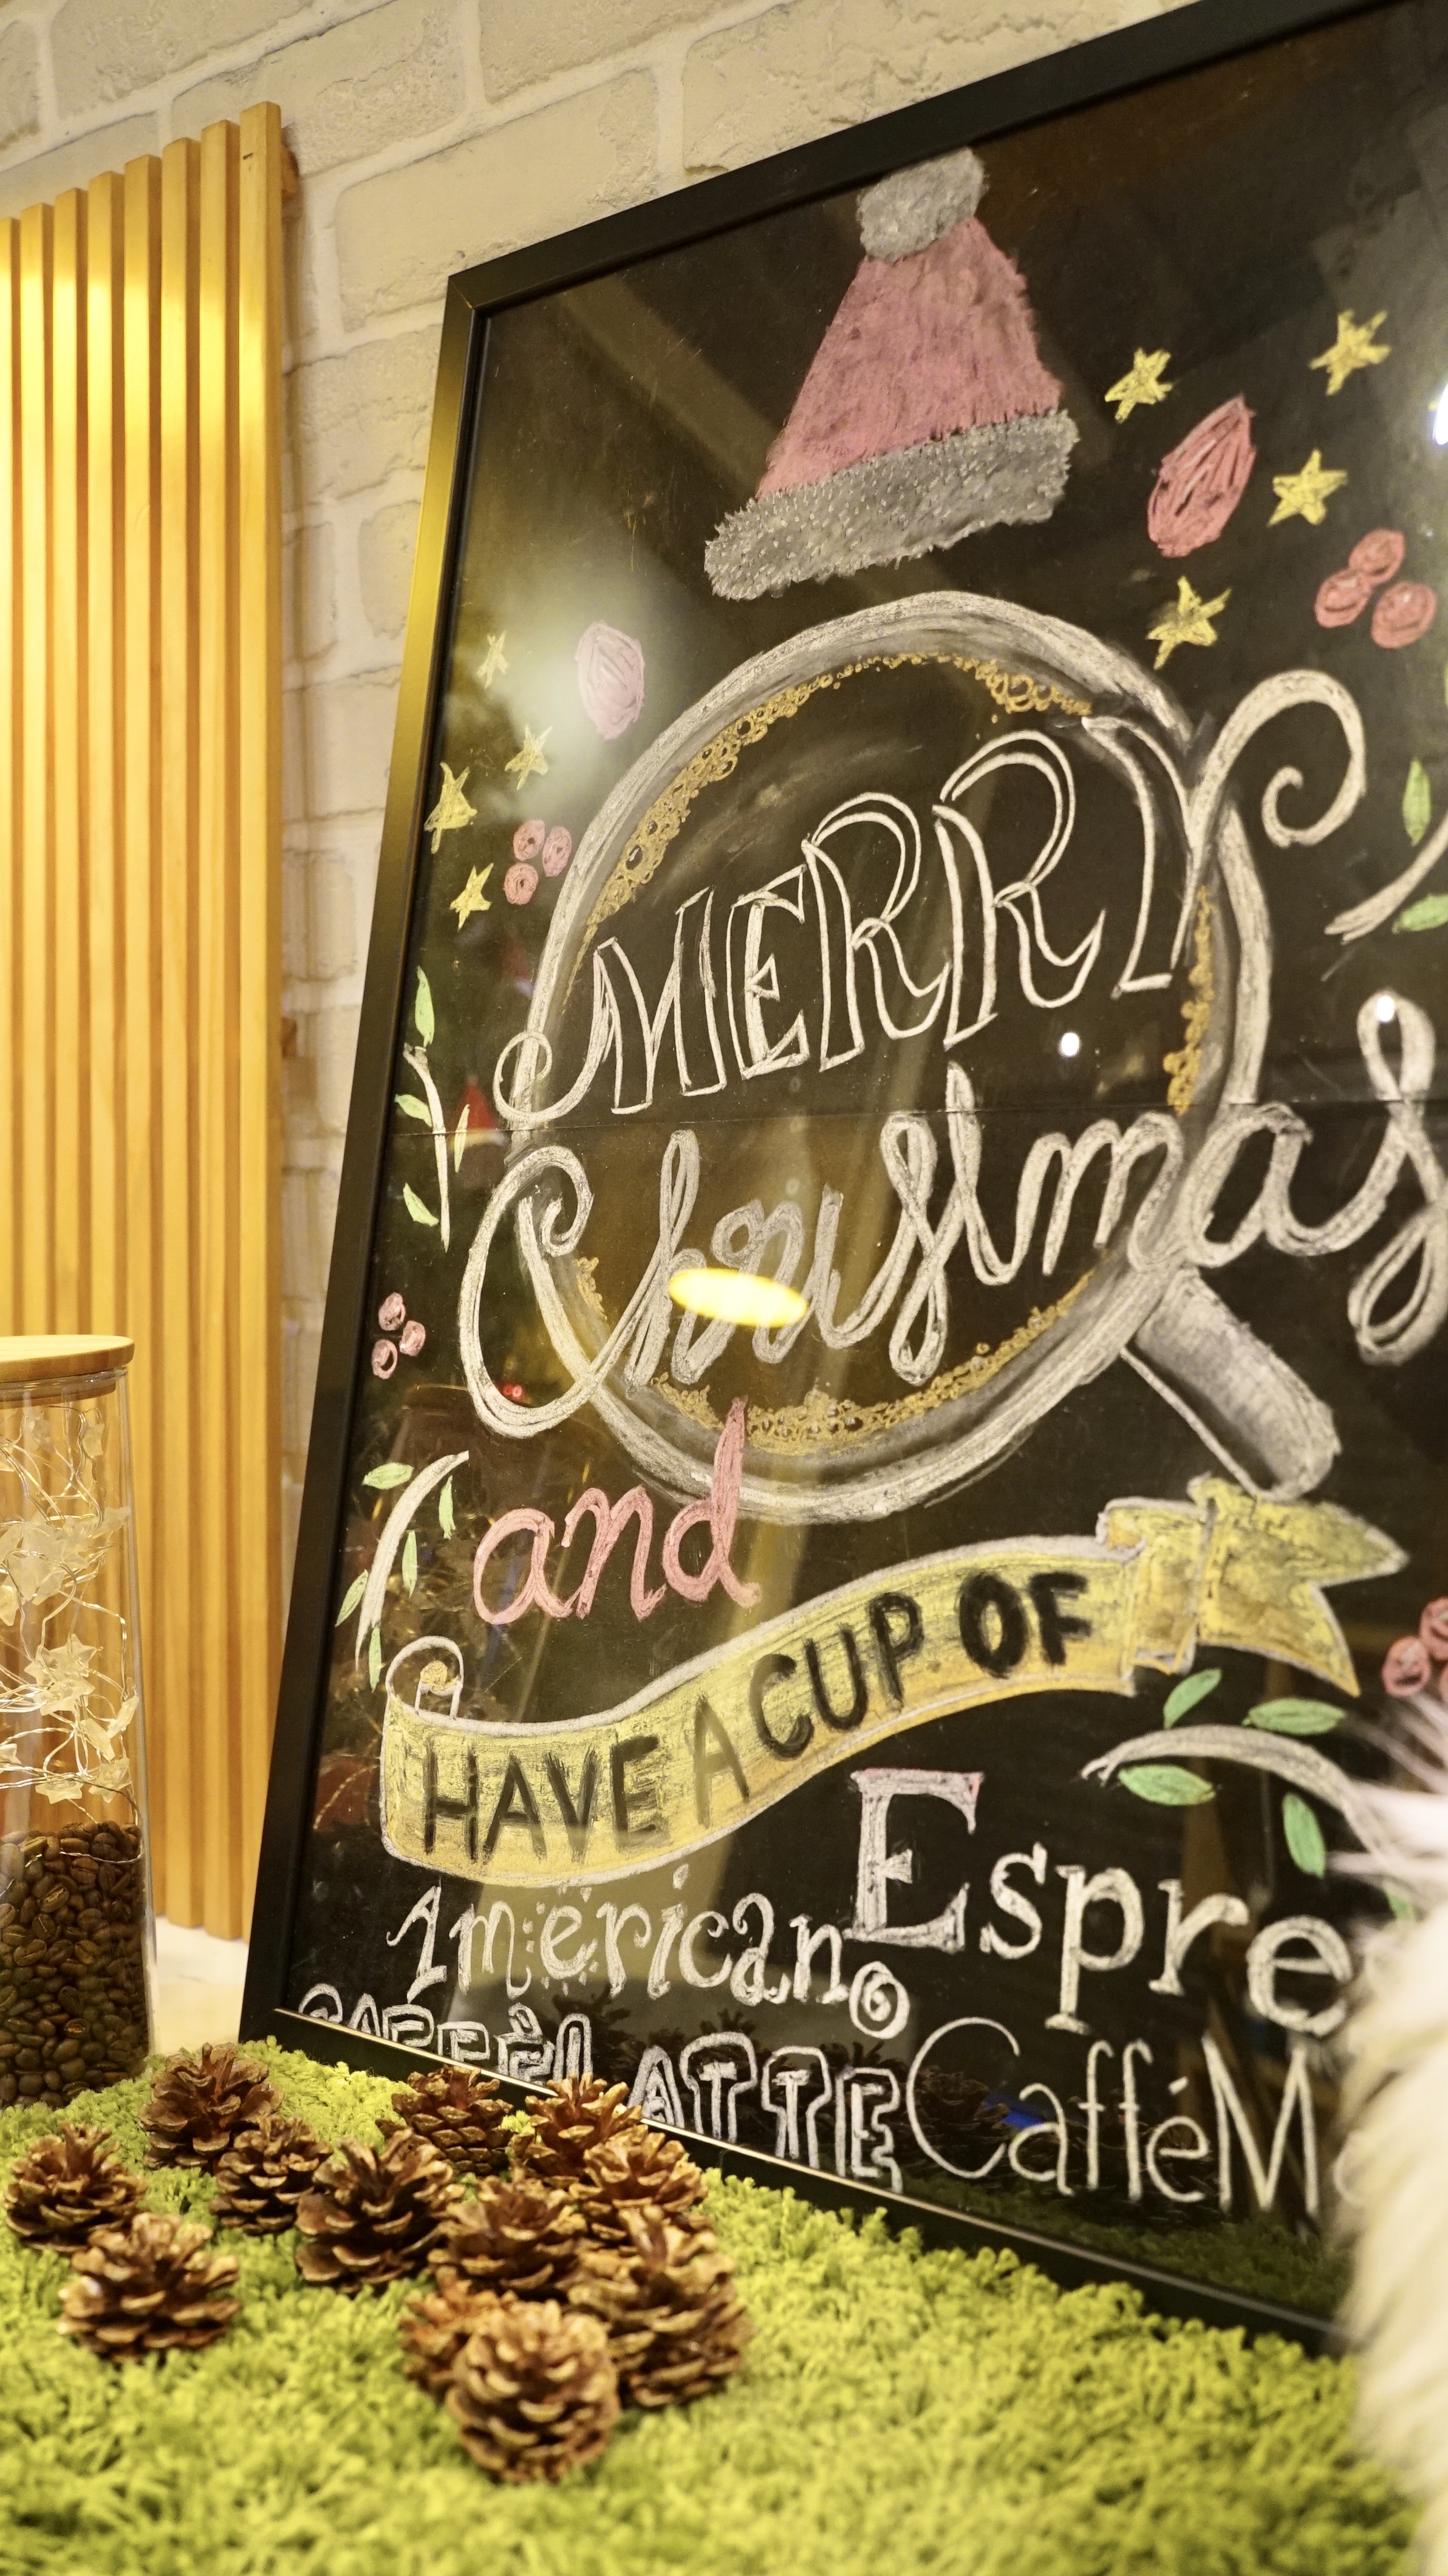 MERRY
Christmas
and
HAVE A CUP OF
Americano Espre
CAFFÈ LATTE Caffè M